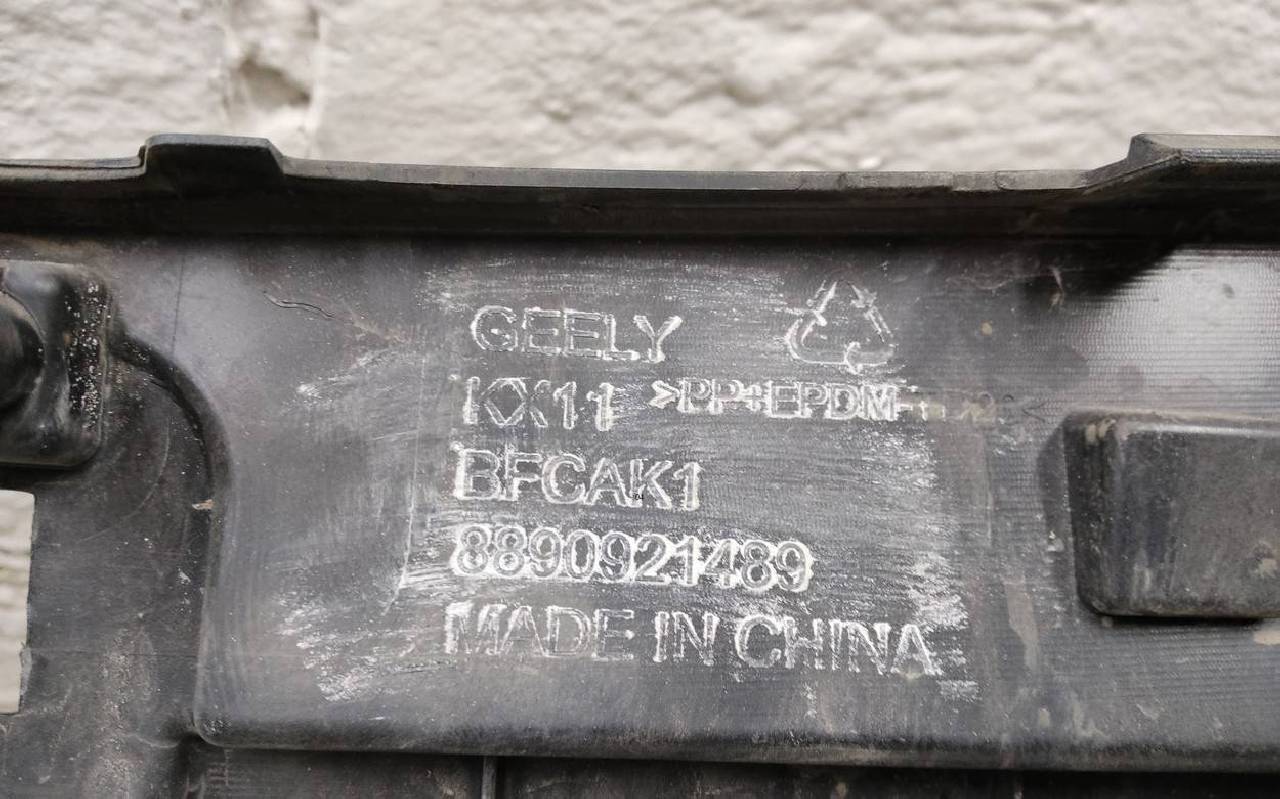 GEELY
KX11 >PP+EPDM-
BFCAK1
8890921489
MADE IN CHINA